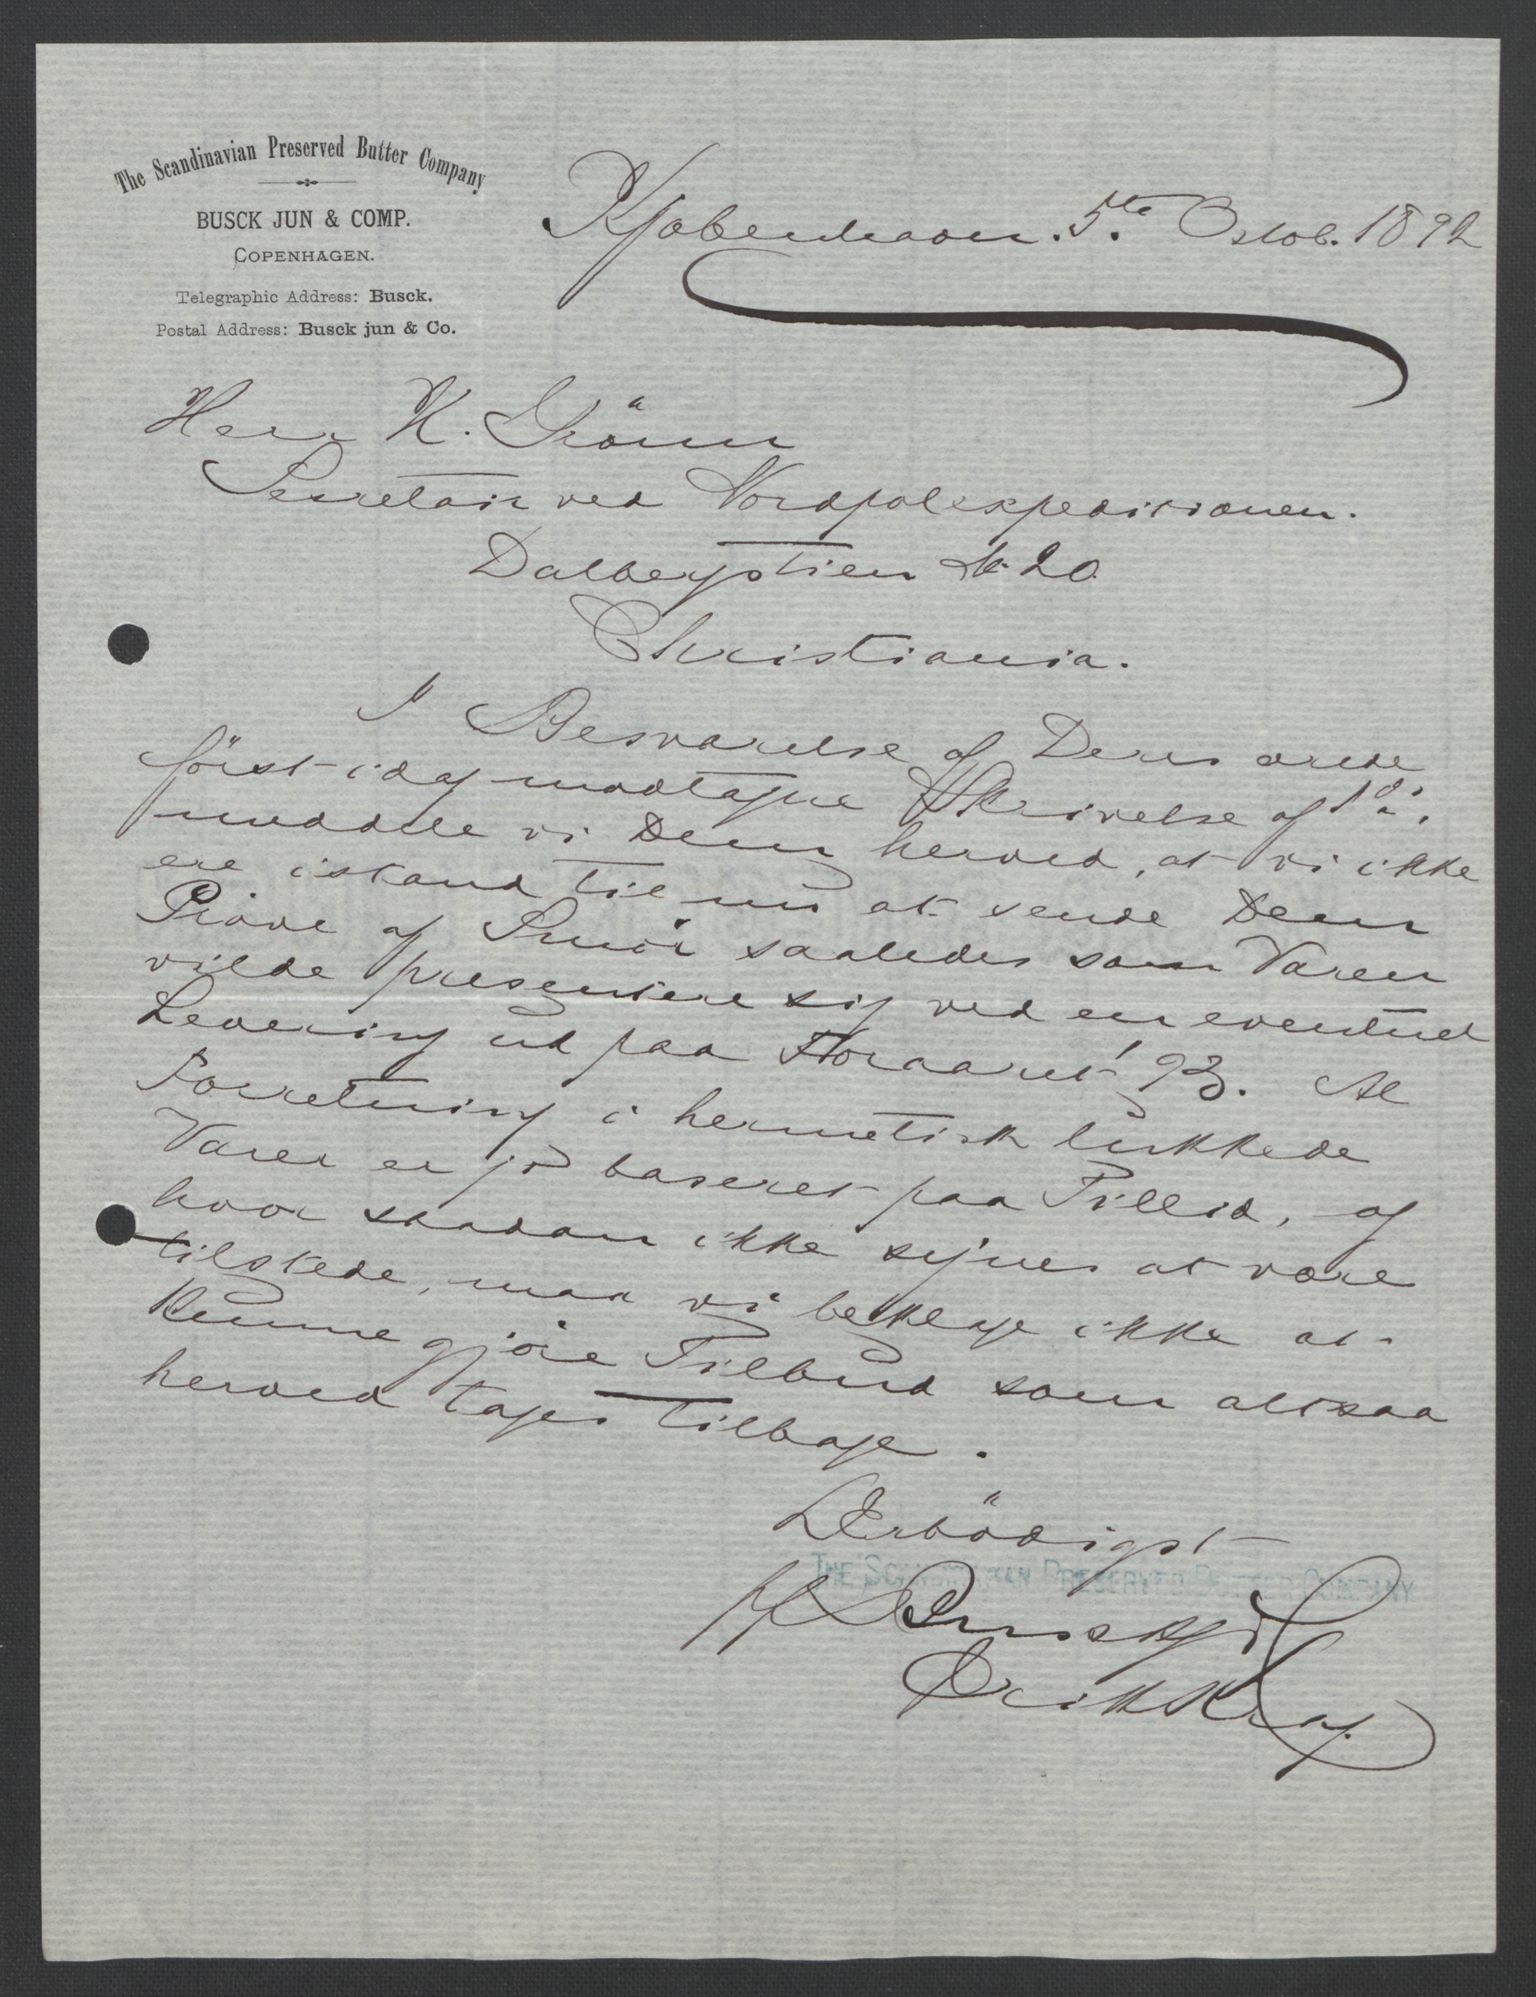 The Scandinavian Preserved Butter Company
BUSCK JUN & COMP.
COPENHAGEN.
Telegraphic Address: Busck.
Postal Address: Busck jun & Co.
Kjøbenhavn. 5te Octob. 1892
Herr K. Grönn
Secretair ved Nordpolexpeditionen.
Dalbergstien No 20
Christiania.
I Besvarelse af Deres ærede
först idag modtagne Skrivelse af 1ds.
meddele vi Dem herved, at vi ikke
ere istand til nu at sende Dem
Pröve af Smör saaledes som Varen
vilde presentere sig ved en eventuel
Levering ud paa Foraaret 93. Al
Forretning i hermetisk lukkede
Varer er jo baseret paa Tillid, og
hvor saadan ikke synes at være
tilstede, maa vi beklage ikke at
kunne gjöre Tilbud som altsaa
herved tages tilbage.
Ærbödigst
THE SCANDINAVIAN PRESERVED BUTTER COMPANY
Busck jr